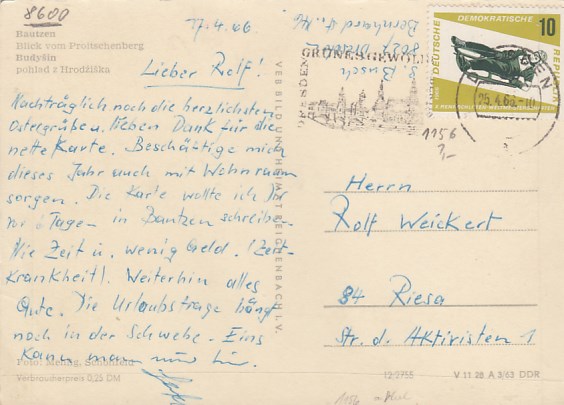 8600
Bautzen
Blick vom Proitschenberg
Budyšin
pohlad z Hrodžiška
17.4.66
Lieber Rolf!
Nachträglich noch die herzlichsten
Ostergrüße u. lieben Dank für die
nette Karte. Beschäftige mich
dieses Jahr auch mit Wohnraum
sorgen. Die Karte wollte ich Dir
vor Tagen in Bautzen schreiben
Wie Zeit u. wenig Geld. (Zeit-
krankheit). Weiterhin alles
Gute. Die Urlaubsfrage hängt
noch in der Schwebe. Eins
kann man nur
Foto: Meinig, Schönfeld
Verbraucherpreis 0,25 DM
VERB BILD UND HEIMAT REICHENBACH I. V.
S. Busch
GRÜNES GEWÖLBE
DRESDEN
25.4.66
DEUTSCHE DEMOKRATISCHE REPUBLIK
10
1156
Herrn
Rolf Weickert
84 Riesa
Str. d. Aktivisten 1
12/2755
V 11 28 A 3/63 DDR
1156